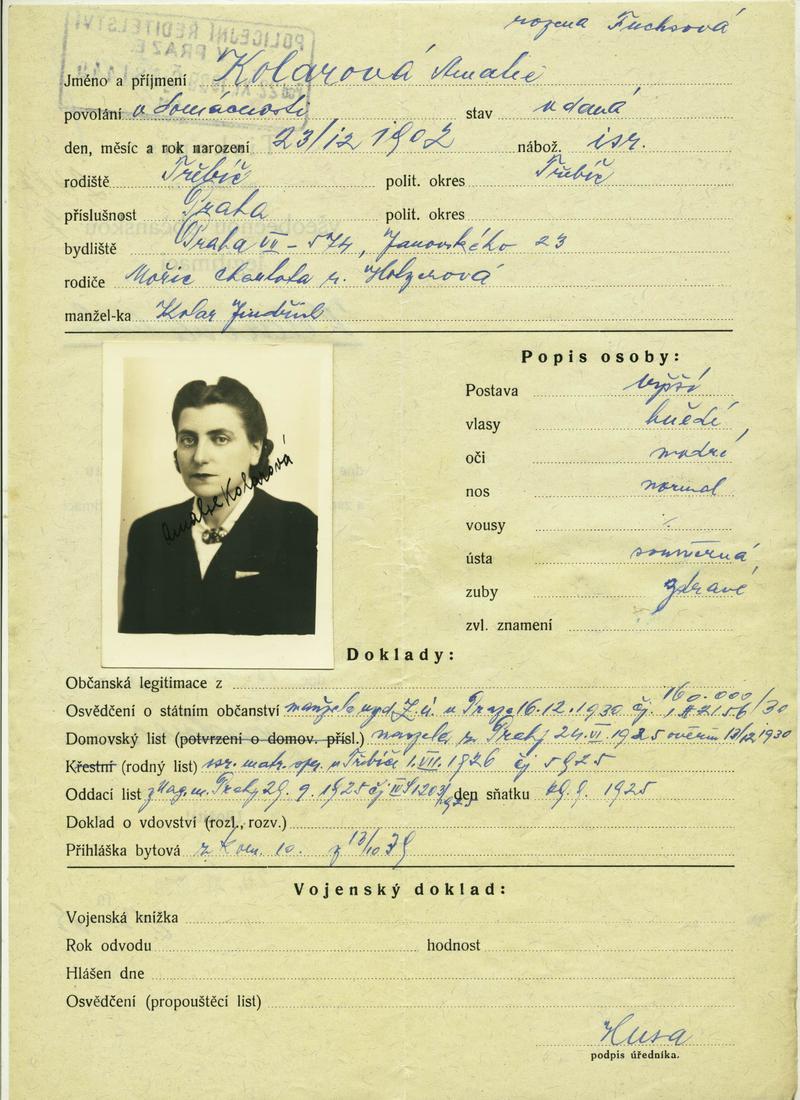 rozena Fuchsová
POLICEJNÍ ŘEDITELSTVÍ
V PRAZE
Jméno a příjmení Kolarová Amalie
povolání v domácnosti stav vdaná
den, měsíc a rok narození 23/12 1902 nábož. isr.
rodiště Třebíč polit. okres Třebíč
příslušnost Praha polit. okres
bydliště Praha VII – 574, Janovského 23
rodiče Mořic Charlota r. Holzerová
manžel-ka Kolar Jindřich
Popis osoby:
Postava vyšší
vlasy hnědé
oči modré
nos normal
vousy ·/·
ústa souměrná
zuby zdravé
zvl. znamení
Amalie Kolarová
Doklady:
Občanská legitimace z
160.000
Osvědčení o státním občanství manžela vyd. Z. ú. v Praze 16.12.1930 čj. /30
Domovský list (potvrzení o domov. přísl.) manžela z Prahy 24.VI.1925 ověřen 13/12 1930
Křestní (rodný list) isr. matr. v Třebíči 1.VII.1926 čj 5925
Oddací list z Mag. m. Prahy 29. 9. 1925 čj den sňatku 29. 9. 1925
Doklad o vdovství (rozl., rozv.)
Přihláška bytová z Kom. 10. z 13/10 39
Vojenský doklad:
Vojenská knížka
Rok odvodu hodnost
Hlášen dne
Osvědčení (propouštěcí list)
Husa
podpis úředníka.